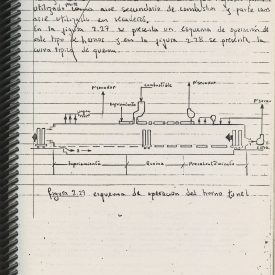 utilizada como aire secundario de combustion y parte como
aire utilizado en secaderos.
En la figura 2.27 se presenta un esquema de operación de
este tipo de hornos y en la figura 2.28 se presenta la
curva típica de quema.
combustible
Enfriamiento
Quema
Precalentamiento
figura 2.27 esquema de operación del horno tunel